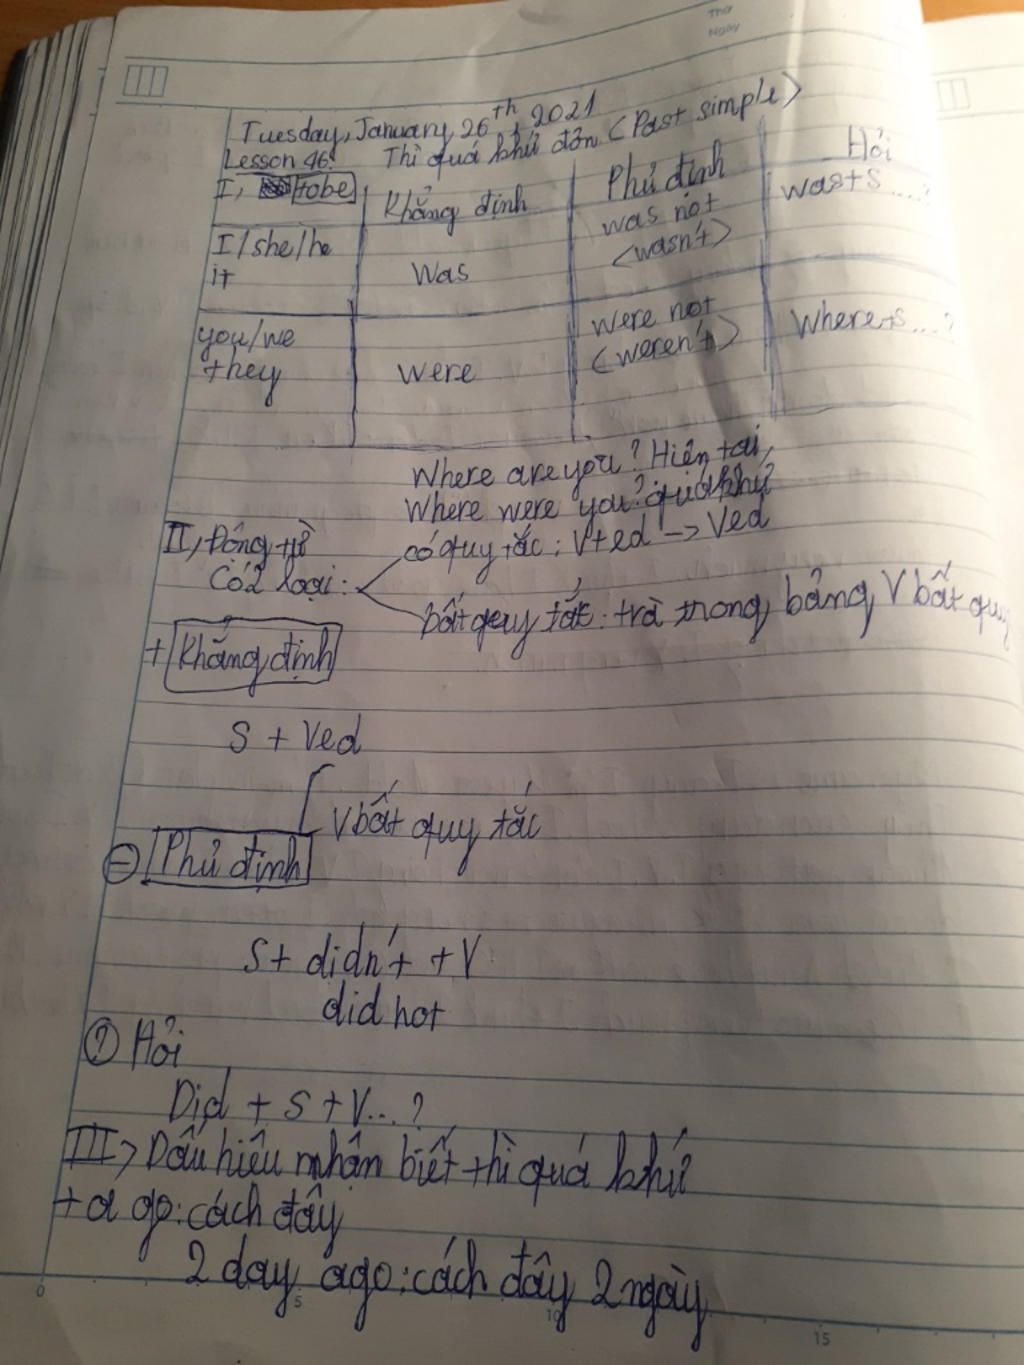 Thứ
Ngày
Tuesday, January, 26th, 2021
Lesson 46: Thì quá khứ đơn (Past simple)
I, tobe Khẳng định Phủ định Hỏi
I/she/he it Was was not (wasn't) was+S....?
you/we they were were not (weren't) Where+s....?
Where are you? Hiện tại,
Where were you? quá khứ
II, Động từ có quy tắc: V+ed -> Ved
Có 2 loại:
bất quy tắc: trà trong bảng V bất quy
+ Khẳng định
S + Ved
V bất quy tắc
- Phủ định
S + didn't + V
did not
? Hỏi
Did + S + V...?
III, Dấu hiệu nhận biết thì quá khứ
+ a go: cách đây
2 day ago: cách đây 2 ngày
0 5 10 15